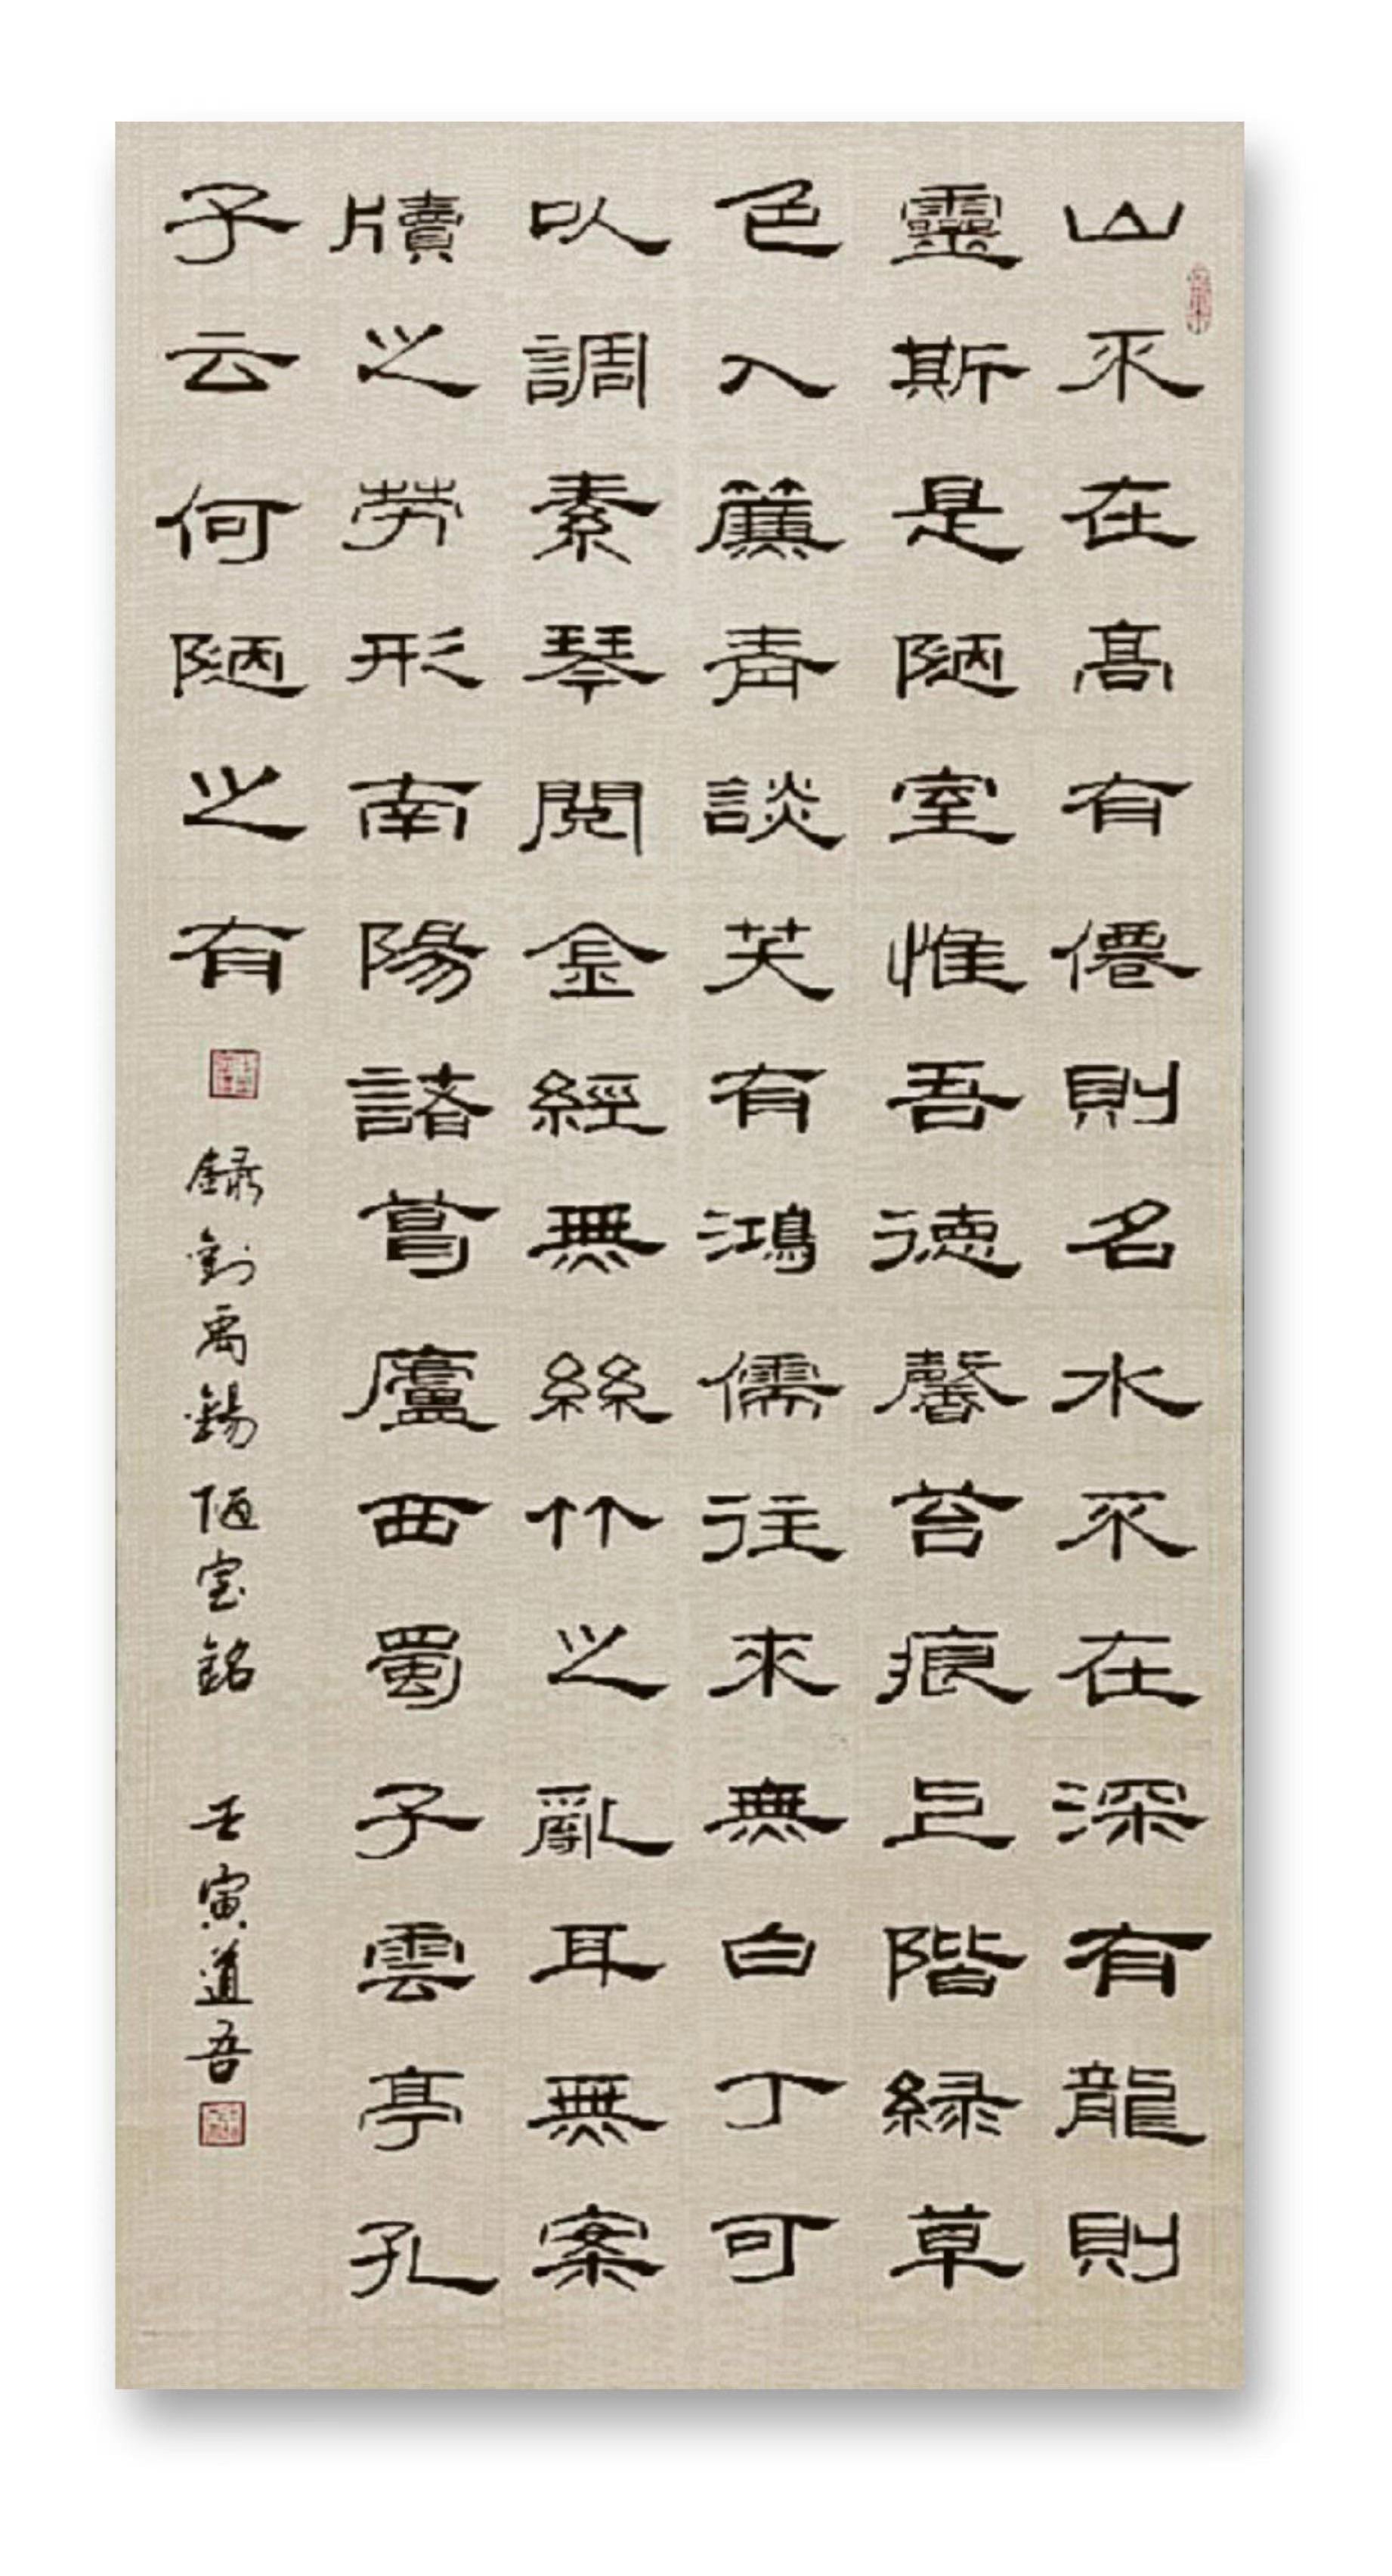 山不在高有僊則名水不在深有龍則
靈斯是陋室惟吾德馨苔痕上階緑草
色入簾青談笑有鴻儒往來無白丁可
以調素琴閱金經無絲竹之亂耳無案
牘之勞形南陽諸葛廬西蜀子雲亭孔
子云何陋之有
錄劉禹錫陋室銘 壬寅道吾